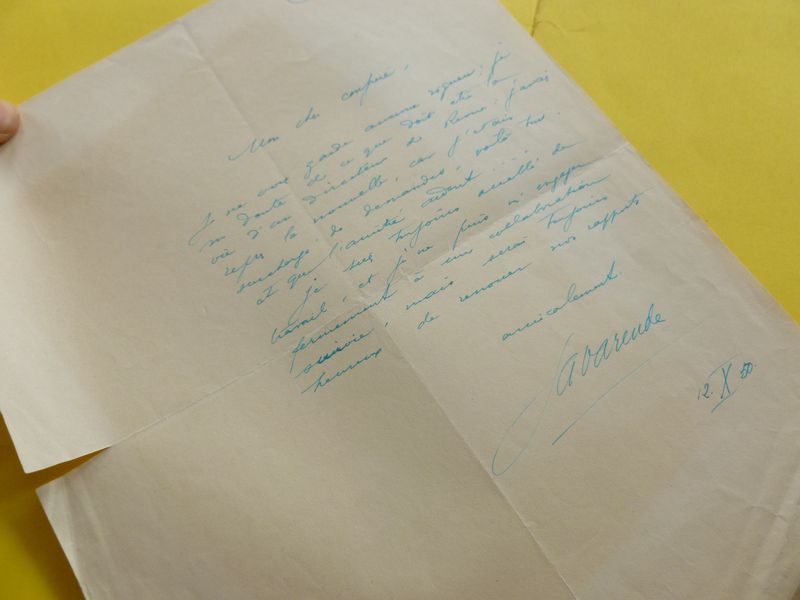 Mon cher confrère,
Je ne vous garde aucune rigueur : je
m doute de ce que doit être la
vie d'un directeur de Revue : j'avais
refusé la nouvelle, car j'étais
surchargé de demandes, voilà tout
et que l'amitié avant ....
Je suis toujours accablé de
travail, et je ne puis m'engager
fermement à une collaboration
suivie, mais serai toujours
heureux de renouer nos rapports
amicalement.
La Varende
12. X 50.